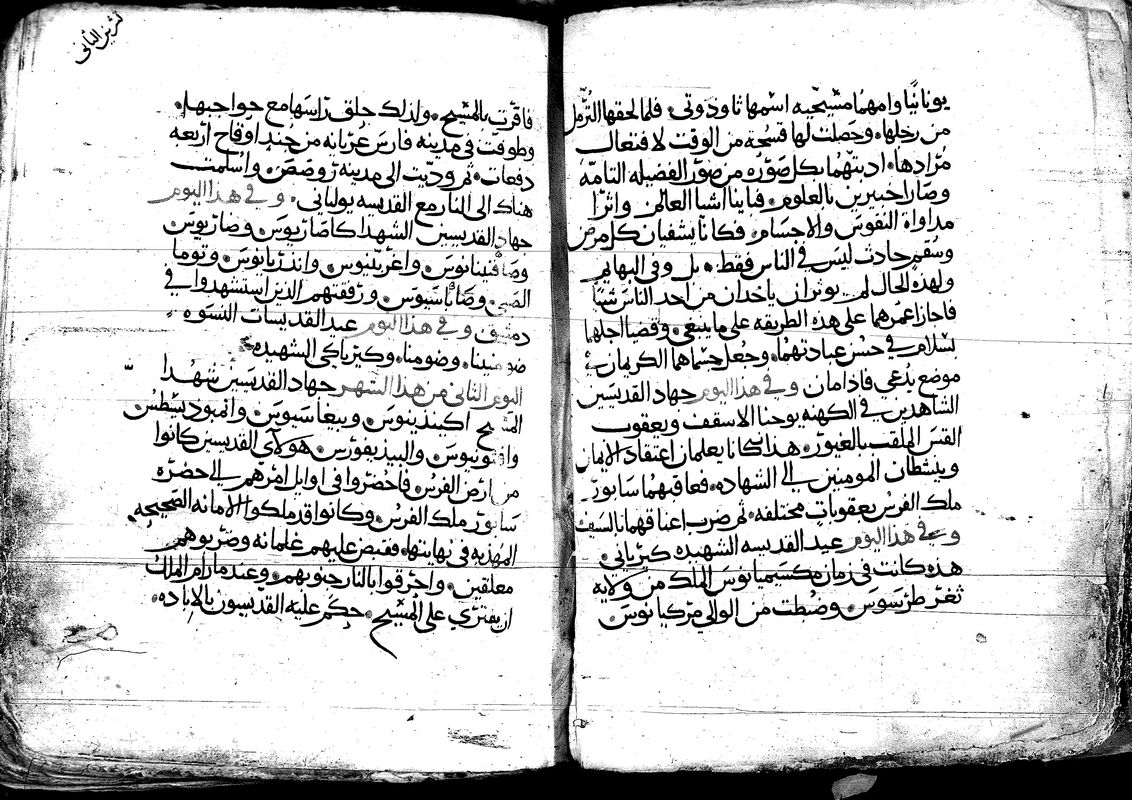 يونانيًا وامهما مسيحيه اسمها ثاوذوتي. فلما لحقها الترمل
من رجلها. وحصلت لها فسحه من الوقت لافتعال
مرادها. ادبتهما بكل صوره من صور الفضيله التامه
وصارا خبيرين بالعلوم. فباينا اشيا العالم. واثرا
مداواة النفوس والاجسام. فكانا يشفيان كل مرض
وسقم حادث ليس في الناس فقط. بل وفي البهايم
ولهذه الحال لم يوثرا ان ياخدان من احد الناس شيًا
فاجازا عمرهما على هذه الطريقه على ما ينبغي. وقضيا اجلهما
بسلام في حسن عبادتهما. وجعل جسماهما الكريمان في
موضع يدعى فاذامان وفي هذا اليوم جهاد القديسين
الشاهدين في الكهنه يوحنا الاسقف ويعقوب
القس الملقب بالغيور. هذان كانا يعلمان اعتقاد الايمان
وينشطان المومنين الى الشهاده. فعاقبهما سابور
ملك الفرس بعقوبات مختلفه. ثم ضرب اعناقهما بالسيف
وفي هذا اليوم عيد القديسه الشهيده كيرياني.
هذه كانت في زمان مكسيميانوس الملك من ولاية
ثغر طرسوس. وضبطت من الوالي مركيانوس
تشرين الثاني
فاقرت بالمسيح. ولذلك حلق راسها مع حواجبها.
وطوفت في مدينه فارس عريانه من جند اوقاح اربعه
دفعات. ثم وديت الى مدينة روصص. واسلمت
هناك الى النار مع القديسه يولياني. وفي هذا اليوم
جهاد القديسين الشهدا كاصاريوس وصاريوس
وصافينيانوس واغريبنوس واندريانوس وتوما
الصبي. وصاباسيوس ورفقتهم الذين استشهدوا في
دمشق وفي هذا اليوم عيد القديسات النسوه
ضومنينا. وضومنا. وكيرياكي الشهيده.
اليوم الثاني من هذا الشهر جهاد القديسين شهدا
المسيح اكيندينوس وبيغاسيوس وانمبوديسطس
وافثونيوس والبيذيفورس. هولاى القديسين كانوا
من ارض الفرس. فاحضروا في اوايل امرهم الى حضرة
سابور ملك الفرس. وكانوا قد ملكوا الامانه الصحيحه.
المهذبه في نهايتها. فقبض عليهم غلمانه وضربوهم
معلقين. واحرقوا بالنار جنوبهم. وعند ما رام الملك
ان يفتري على المسيح. حكم عليه القديسون بالاباده.